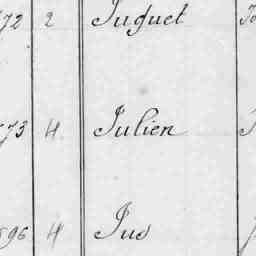 72 2 Juguet
73 4 Julien
96 4 Jus